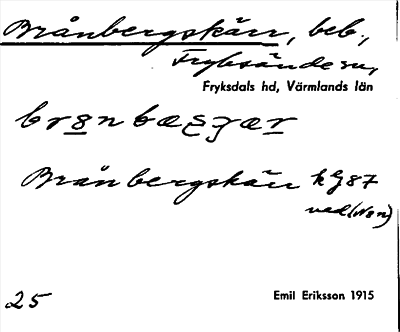 Brånbergskärr, beb.,
Fryksände sn,
Fryksdals hd, Värmlands län
Brånbergskärr kG87
ved(N8n)
25
Emil Eriksson 1915